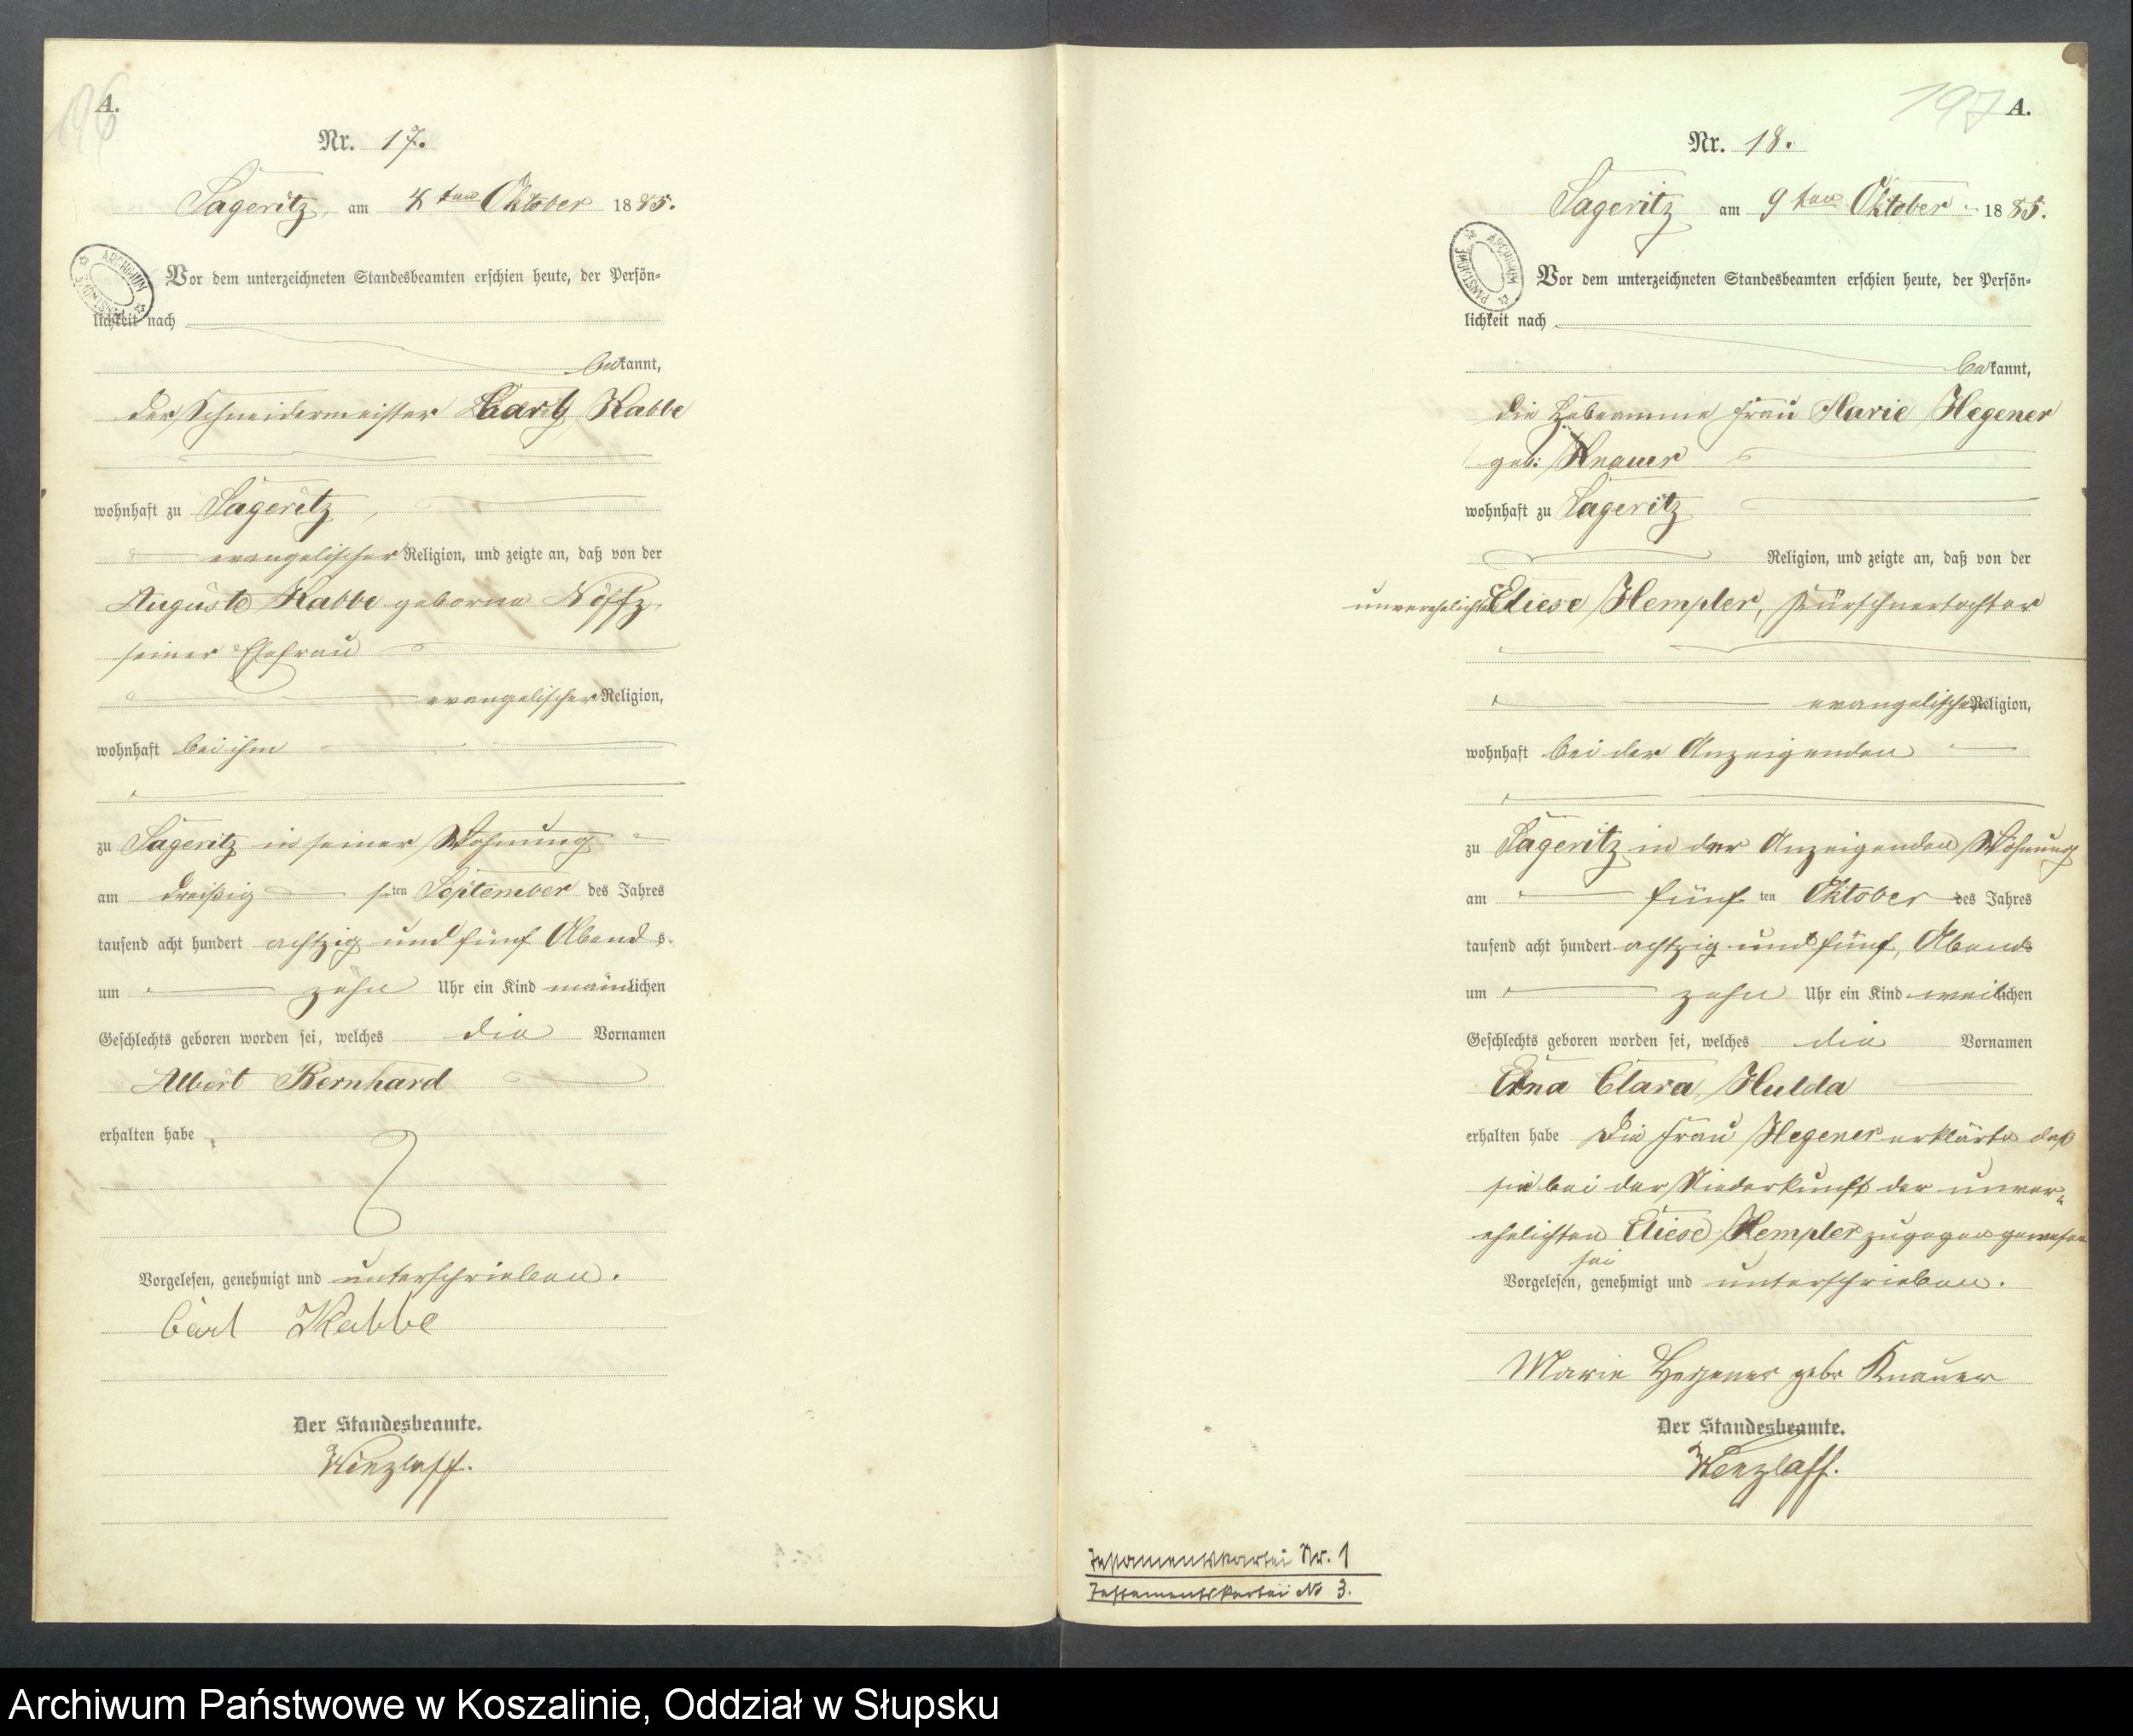 196
A.
Nr. 17.
Sageritz, am ten Oktober 1885.
ARCHIWUM PAŃSTWOWE
Vor dem unterzeichneten Standesbeamten erschien heute, der Persön=
lichkeit nach
bekannt,
der Schneidermeister Carl Kabbe
wohnhaft zu Sageritz,
evangelischer Religion, und zeigte an, daß von der
Auguste Kabbe geborne Nöffz,
seiner Ehefrau
evangelischer Religion,
wohnhaft bei ihm
zu Sageritz in seiner Wohnung
am dreißig sten September des Jahres
tausend acht hundert achtzig und fünf Abends
um zehn Uhr ein Kind männlichen
Geschlechts geboren worden sei, welches die Vornamen
Albert Bernhard
erhalten habe
Vorgelesen, genehmigt und unterschrieben.
Carl Kabbe
Der Standesbeamte.
Wenzlaff.
197
A.
Nr. 18.
Sageritz am 9 ten Oktober 1885.
ARCHIWUM PAŃSTWOWE
Vor dem unterzeichneten Standesbeamten erschien heute, der Persön=
lichkeit nach
bekannt,
die Hebeamme Frau Marie Hegener
geb: Knauer
wohnhaft zu Sageritz
Religion, und zeigte an, daß von der
unverehelichten Eliese Hempler, Kürschnertochter
evangelischer Religion,
wohnhaft bei der Anzeigenden
zu Sageritz in der Anzeigenden Wohnung
am fünf ten Oktober des Jahres
tausend acht hundert achtzig und fünf, Abends
um zehn Uhr ein Kind weiblichen
Geschlechts geboren worden sei, welches die Vornamen
Clara Hulda
erhalten habe Die Frau Hegener erklärte daß
sie bei der Niederkunft der unver=
ehelichten Eliese Hempler zugegen gewesen
sei
Vorgelesen, genehmigt und unterschrieben.
Marie Hegener gebr Knauer
Der Standesbeamte.
Wenzlaff.
Testamentskartei Nr. 1
Testamentskartei No 3.
Archiwum Państwowe w Koszalinie, Oddział w Słupsku